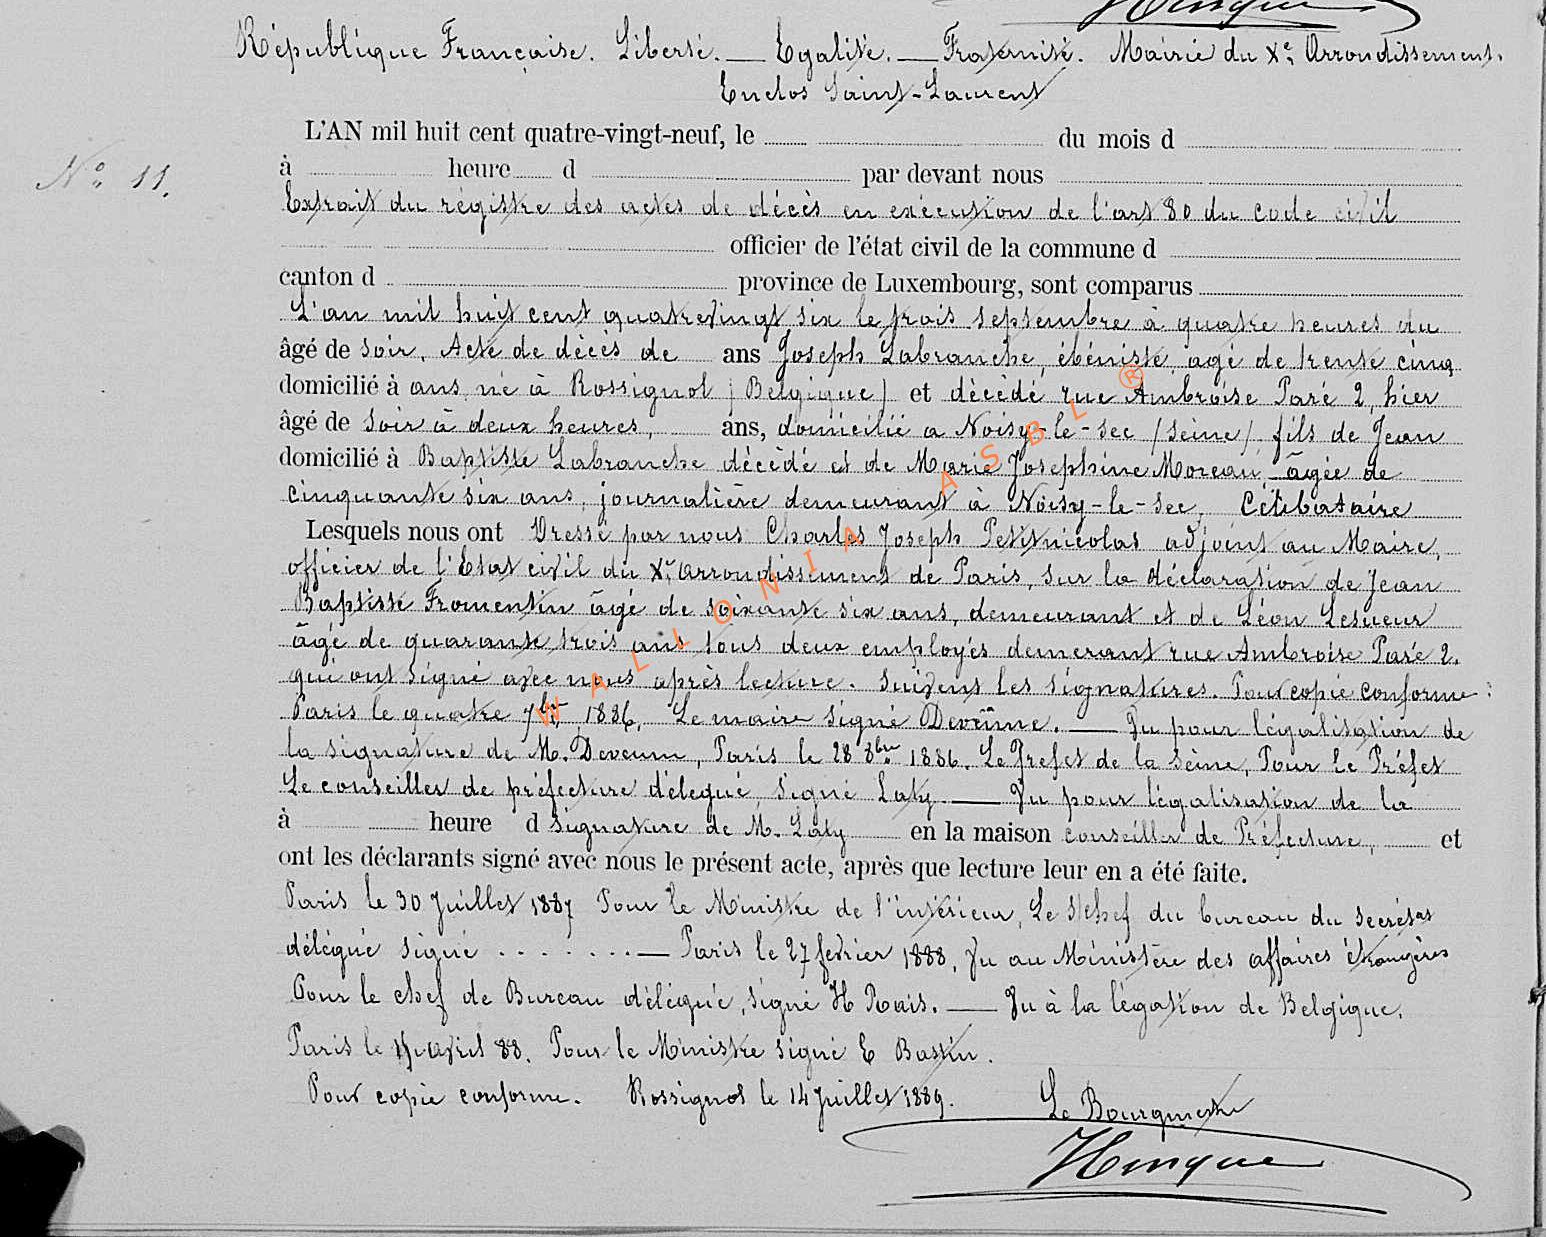 République Française. Liberté. — Egalité. — Fraternité. Mairie du Xe. Arrondissement.
Enclos Saint-Laurent
L'AN mil huit cent quatre-vingt-neuf, le du mois d
No. 11.
à heure d par devant nous
Extrait du régistre des actes de décès en exécution de l'art 80 du code civil
officier de l'état civil de la commune d
canton d province de Luxembourg, sont comparus
L'an mil huit cent quatrevingt six le trois septembre à quatre heures du
âgé de soir. Acte de décès de ans Joseph Labranche, ébéniste, agé de trente cinq
domicilié à ans, né à Rossignol (Belgique) et décédé rue Ambroise Paré 2, hier
âgé de soir à deux heures, ans, domicilié a Noisy-le-sec (Seine) fils de Jean
domicilié à Baptiste Labranche décédé et de Marie Josephine Moreau, âgée de
cinquante six ans, journalière demeurant à Noisy-le-sec, Célibataire
Lesquels nous ont Dressé par nous Charles Joseph Petitnicolas adjoint au Maire,
officier de l'Etat civil du Xe. arrondissement de Paris, sur la déclaration de Jean
Baptiste Fromentin âgé de soixante six ans, demeurant et de Léon Lesueur
âgé de quarante trois ans tous deux employés demerant rue Ambroise Paré 2.
qui ont signé avec nous après lecture. Suivent les signatures. Pour copie conforme:
Paris le quatre 7bre 1886. Le maire signé Devenne. — Vu pour légalisation de
la signature de M. Devenne, Paris le 28 8bre 1886. Le Prefet de la Seine, Pour le Préfet
Le conseiller de préfecture délegué, signé Laty. — Vu pour légalisation de la
à heure d signature de M. Laty en la maison conseiller de Préfecture, et
ont les déclarants signé avec nous le présent acte, après que lecture leur en a été faite.
Paris le 30 Juillet 1887 Pour le Ministre de l'intérieur, Le s/chef du bureau du secrétat
délégué signé . . . . . . . . — Paris le 27 fevrier 1888, Vu au Ministère des affaires étrangères
Pour le chef de Bureau délégué, signé H Rais. — Vu à la légation de Belgique,
Paris le avril 88. Pour le Ministre signé E Bastin.
Pour copie conforme. Rossignol le 14 Juillet 1889. Le Bourgmestre
Hinque
WALLONIA ASBL ®